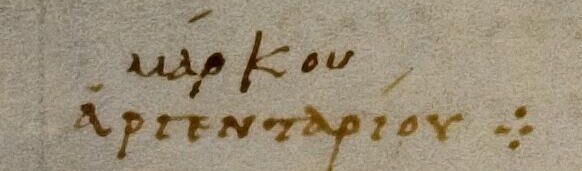 μάρκου
ἀργενταρίου ⁘